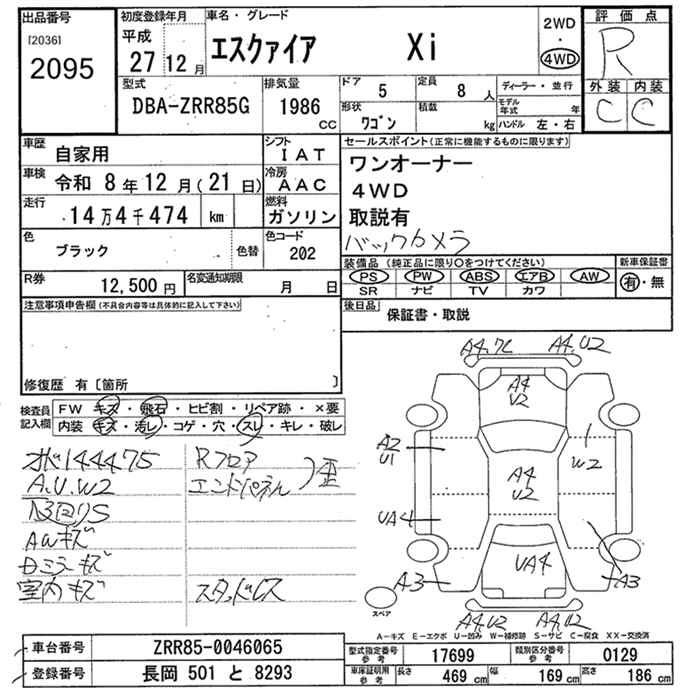 出品番号
[2036]
2095
初度登録年月
平成
27 12 月
車名・グレード
エスクァイア Xi
2WD
・
4WD
評価点
R
外装 内装
C C
型式
DBA-ZRR85G
排気量
1986
CC
ドア
5
定員
8 人
形状
ワゴン
積載
kg
ディーラー・並行
モデル年式 年
ハンドル 左・右
車歴
自家用
シフト
IAT
車検
令和 8年12月(21日)
冷房
AAC
走行
14万4千474 km
燃料
ガソリン
色
ブラック
色替
色コード
202
R券
12,500円
名変通知期限
月 日
セールスポイント(正常に機能するものに限ります)
ワンオーナー
4WD
取説有
バックカメラ
装備品(純正品に限り○をつけてください)
新車保証書
PS PW ABS エアB AW
SR ナビ TV カワ
有・無
後日品
保証書・取説
注意事項申告欄(不具合内容等は具体的に記入して下さい)
修復歴 有〔箇所 〕
検査員記入欄
FW キズ・飛石・ヒビ割・リペア跡・×要
内装 キズ・汚レ・コゲ・穴・スレ・キレ・破レ
オド144475
A.U.W2
下回りS
AWキズ
Dミラーキズ
室内キズ
Rフロア
エンドパネル
歪
スタッドレス
A4.7C
A4.U2
A4
U2
A2
U1
1
W2
A4
U2
UA4
UA4
A3
A3
A4.U2
A4.U2
スペア
A－キズ E－エクボ U－凹み W－補修跡 S－サビ C－腐食 XX－交換済
車台番号
ZRR85-0046065
登録番号
長岡 501 と 8293
型式指定番号
参考
17699
類別区分番号
参考
0129
車庫証明用
参考
長さ
469 cm
幅
169 cm
高さ
186 cm